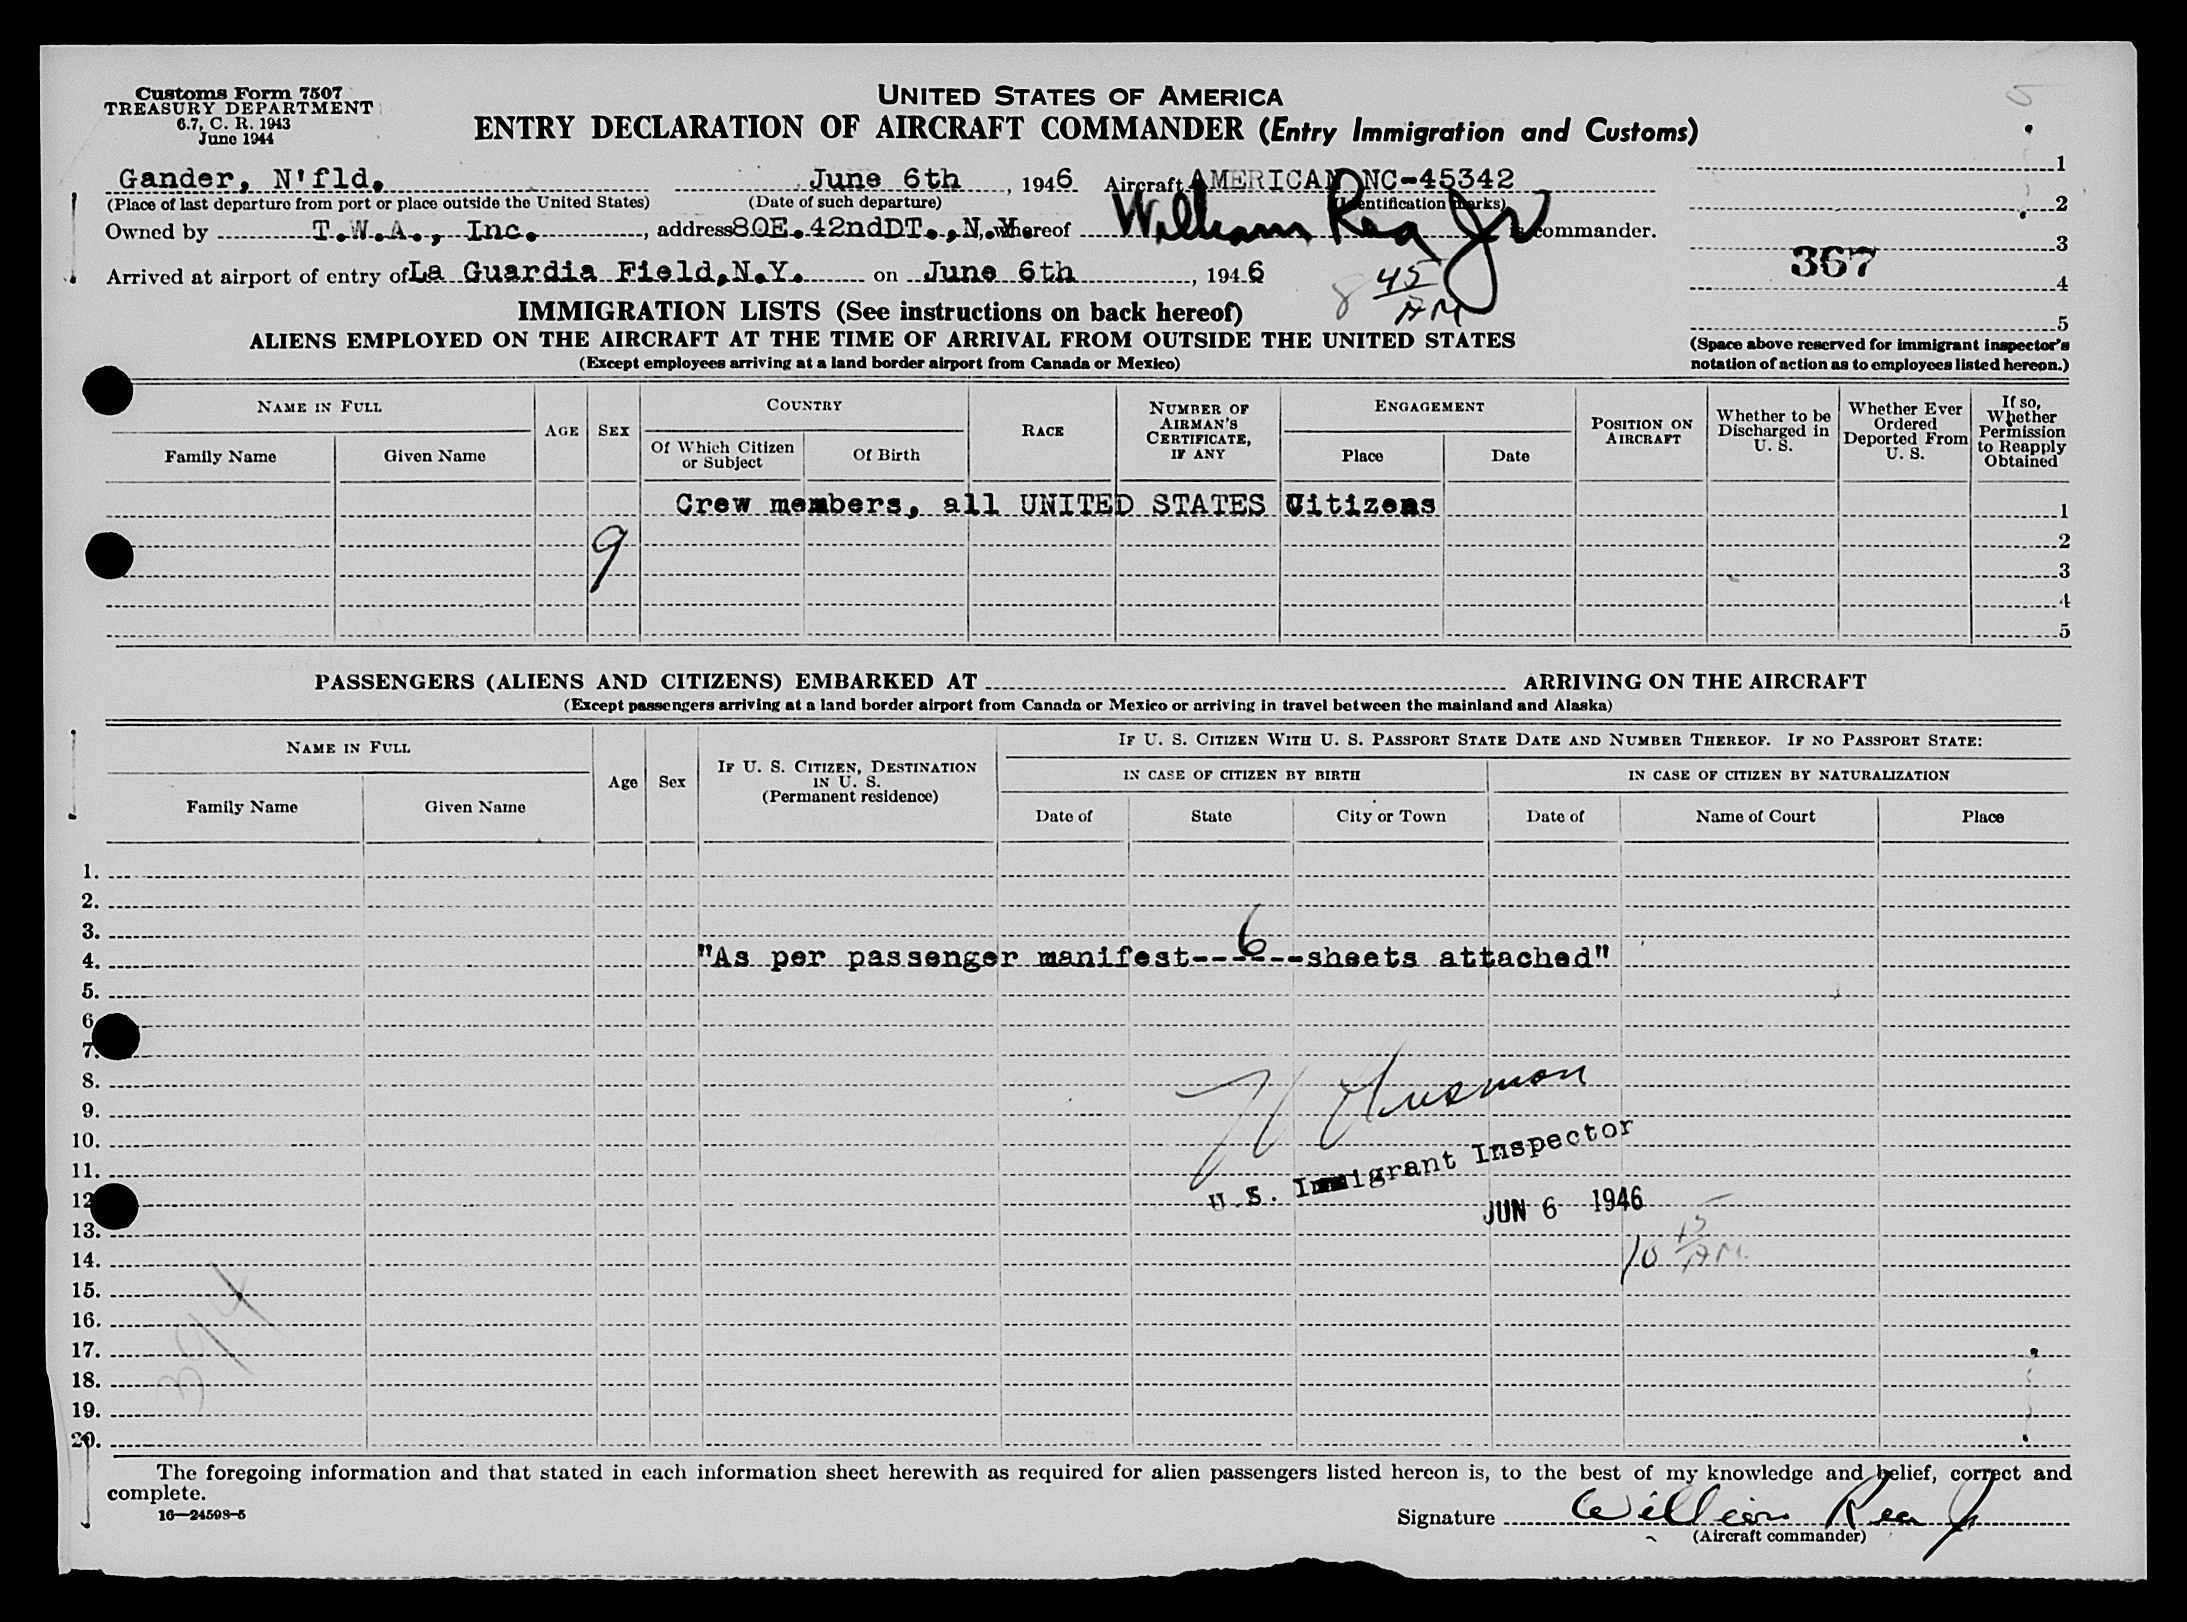 Customs Form 7507
TREASURY DEPARTMENT
6.7, C. R. 1943
June 1944
UNITED STATES OF AMERICA
ENTRY DECLARATION OF AIRCRAFT COMMANDER (Entry Immigration and Customs)
Gander, N'fld. June 6th, 1946 Aircraft AMERICAN NC-45342
(Place of last departure from port or place outside the United States) (Date of such departure) (Identification marks)
Owned by T.W.A., Inc., address 80E. 42ndDT., N.Y. whereof William Rea Jr is commander.
Arrived at airport of entry of La Guardia Field, N.Y. on June 6th, 1946
8 45 AM
1
2
3
367
4
5
(Space above reserved for immigrant inspector's
notation of action as to employees listed hereon.)
IMMIGRATION LISTS (See instructions on back hereof)
ALIENS EMPLOYED ON THE AIRCRAFT AT THE TIME OF ARRIVAL FROM OUTSIDE THE UNITED STATES
(Except employees arriving at a land border airport from Canada or Mexico)
NAME IN FULL
Family Name
Given Name
AGE
SEX
COUNTRY
Of Which Citizen
or Subject
Of Birth
RACE
NUMBER OF
AIRMAN'S
CERTIFICATE,
IF ANY
ENGAGEMENT
Place
Date
POSITION ON
AIRCRAFT
Whether to be
Discharged in
U. S.
Whether Ever
Ordered
Deported From
U. S.
If so,
Whether
Permission
to Reapply
Obtained
Crew members, all UNITED STATES Citizens 1
9 2
3
4
5
PASSENGERS (ALIENS AND CITIZENS) EMBARKED AT ARRIVING ON THE AIRCRAFT
(Except passengers arriving at a land border airport from Canada or Mexico or arriving in travel between the mainland and Alaska)
NAME IN FULL
Family Name
Given Name
Age
Sex
IF U. S. CITIZEN, DESTINATION
IN U. S.
(Permanent residence)
IF U. S. CITIZEN WITH U. S. PASSPORT STATE DATE AND NUMBER THEREOF. IF NO PASSPORT STATE:
IN CASE OF CITIZEN BY BIRTH
IN CASE OF CITIZEN BY NATURALIZATION
Date of
State
City or Town
Date of
Name of Court
Place
1.
2.
3.
4. "As per passenger manifest---6---sheets attached"
5.
6
7.
8.
9.
10.
11.
U.S. Immigrant Inspector
12
JUN 6 1946
13.
10 15 AM.
14.
15.
16.
17.
18.
19.
20.
The foregoing information and that stated in each information sheet herewith as required for alien passengers listed hereon is, to the best of my knowledge and belief, correct and
complete.
16—24598-5
Signature William Rea Jr
(Aircraft commander)